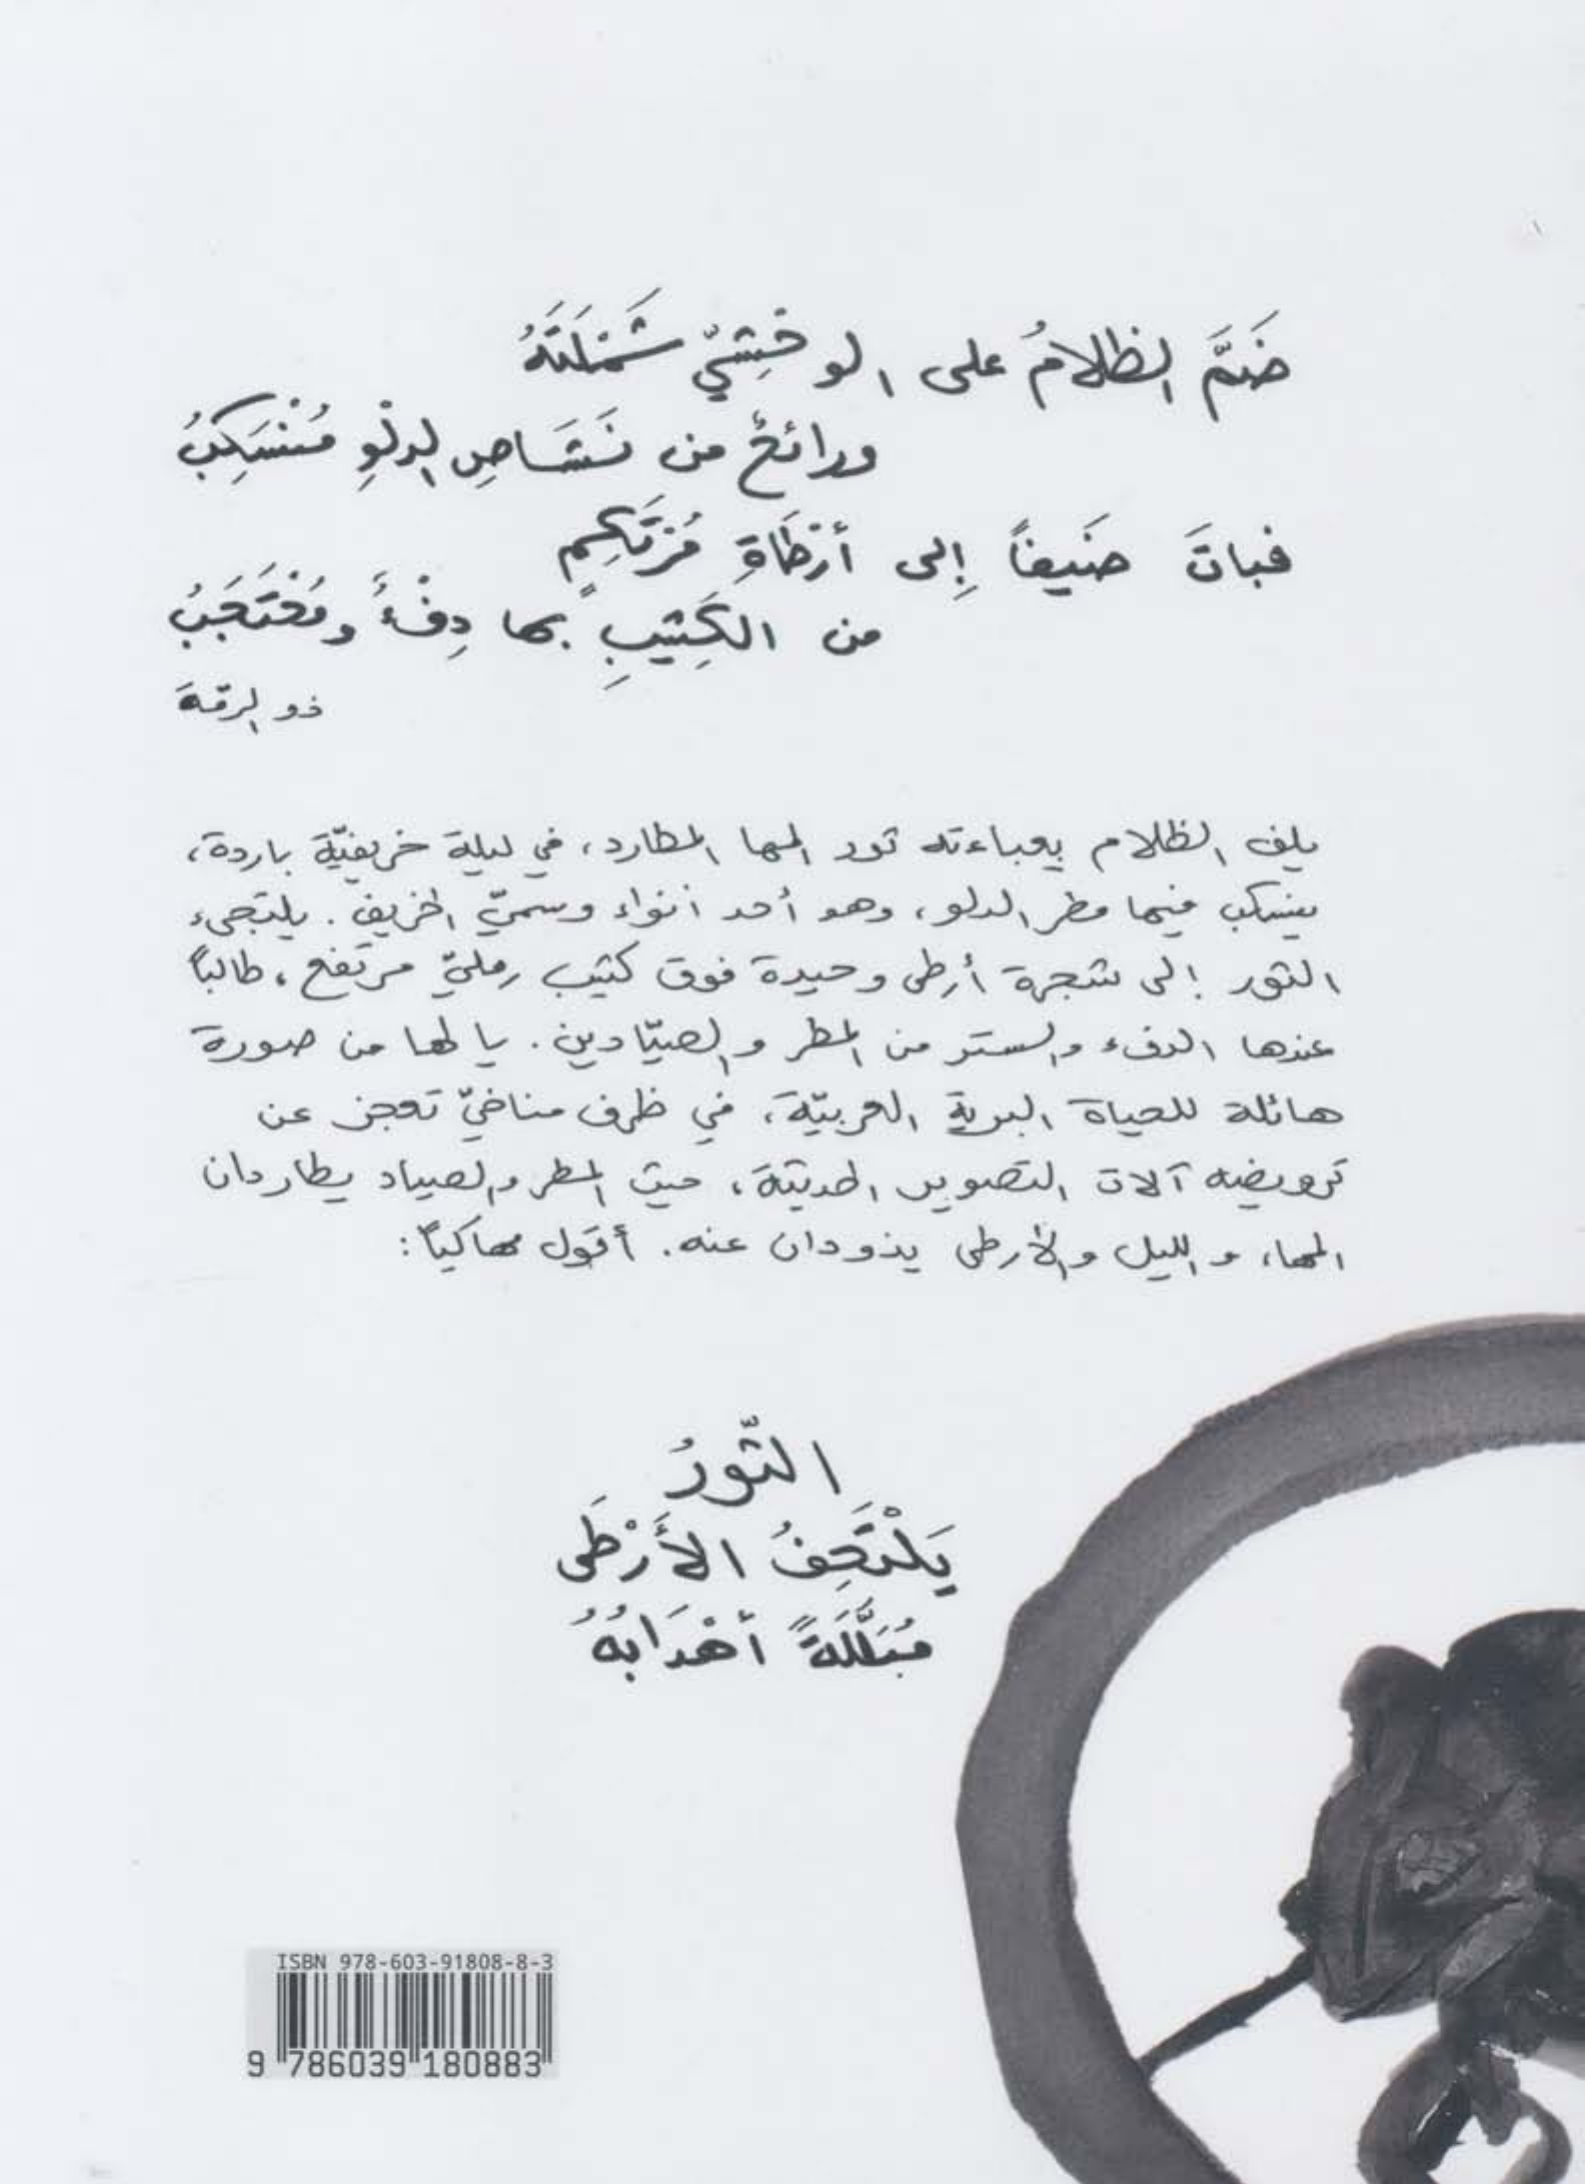 ضَمَّ الظلامُ على الوحْشِيّ شَمْلَتَهُ
ورائحٌ من نَشَاصِ الدلْوِ مُنْسَكِبُ
فباتَ ضَيفاً إِلى أرْطَاةِ مُرْتَكِمٍ
من الكَثِيبِ بها دِفْءٌ ومُحْتَجَبُ
ذو الرمّة
يلف الظلام بعباءته ثور المها المطارد، في ليلة خريفيّة باردة،
ينسكب فيها مطر الدلو، وهو أحد أنواء وسميّ الخريف. يلتجىء
الثور إلى شجرة أرطى وحيدة فوق كثيب رمليّ مرتفع، طالباً
عندها الدفء والستر من المطر والصيّادين. يا لها من صورة
هائلة للحياة البرية العربيّة، في ظرف مناخيّ تعجز عن
ترويضه آلات التصوير الحديثة، حيث المطر والصياد يطاردان
المها، والليل والأرطى يذودان عنه. أقول محاكياً:
الثّورُ
يَلْتَحِفُ الأَرْطَى
مُبَلَّلَةً أهْدَابُهُ
ISBN 978-603-91808-8-3
9 786039 180883